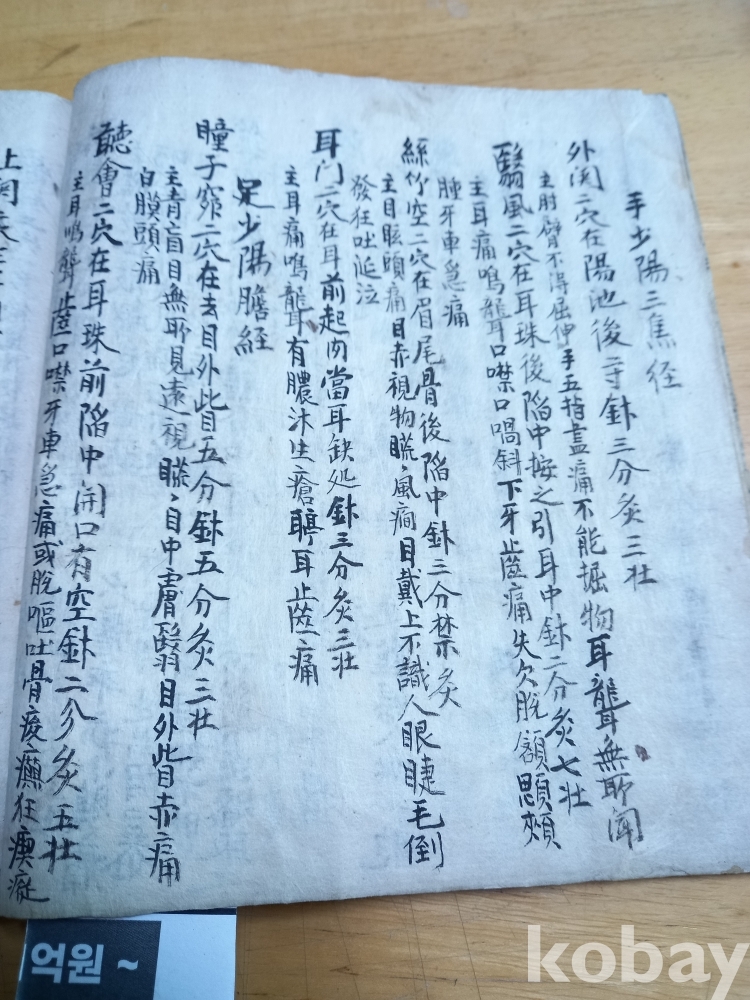 手少陽三焦経
外関二穴在陽池後二寸鈢三分灸三壮
主肘臂不得屈伸手五指盡痛不能掘物耳聾無所聞
翳風二穴在耳珠後陷中按之引耳中鈢二分灸七壮
主耳痛鳴聾口噤口喎斜下牙齒痛失欠脫頷顋頰
腫牙車急痛
絲竹空二穴在眉尾骨後陷中鈢三分禁灸
主目眩頭痛目赤視物䀮〻風癎目戴上不識人眼睫毛倒
發狂吐涎泣
耳门二穴在耳前起肉當耳缺処鈢三分灸三壮
主耳痛鳴聾有膿汁生瘡聤耳止齒痛
足少陽膽経
瞳子窌二穴在去目外眥五分鈢五分灸三壮
主青盲目無所見遠視䀮〻目中膚翳目外眥赤痛
白膜頭痛
聽會二穴在耳珠前陷中開口有空鈢二分灸五壮
主耳鳴聾止齒口噤牙車急痛或脫嘔吐骨痠癲狂瘈瘲
억원 ~
kobay